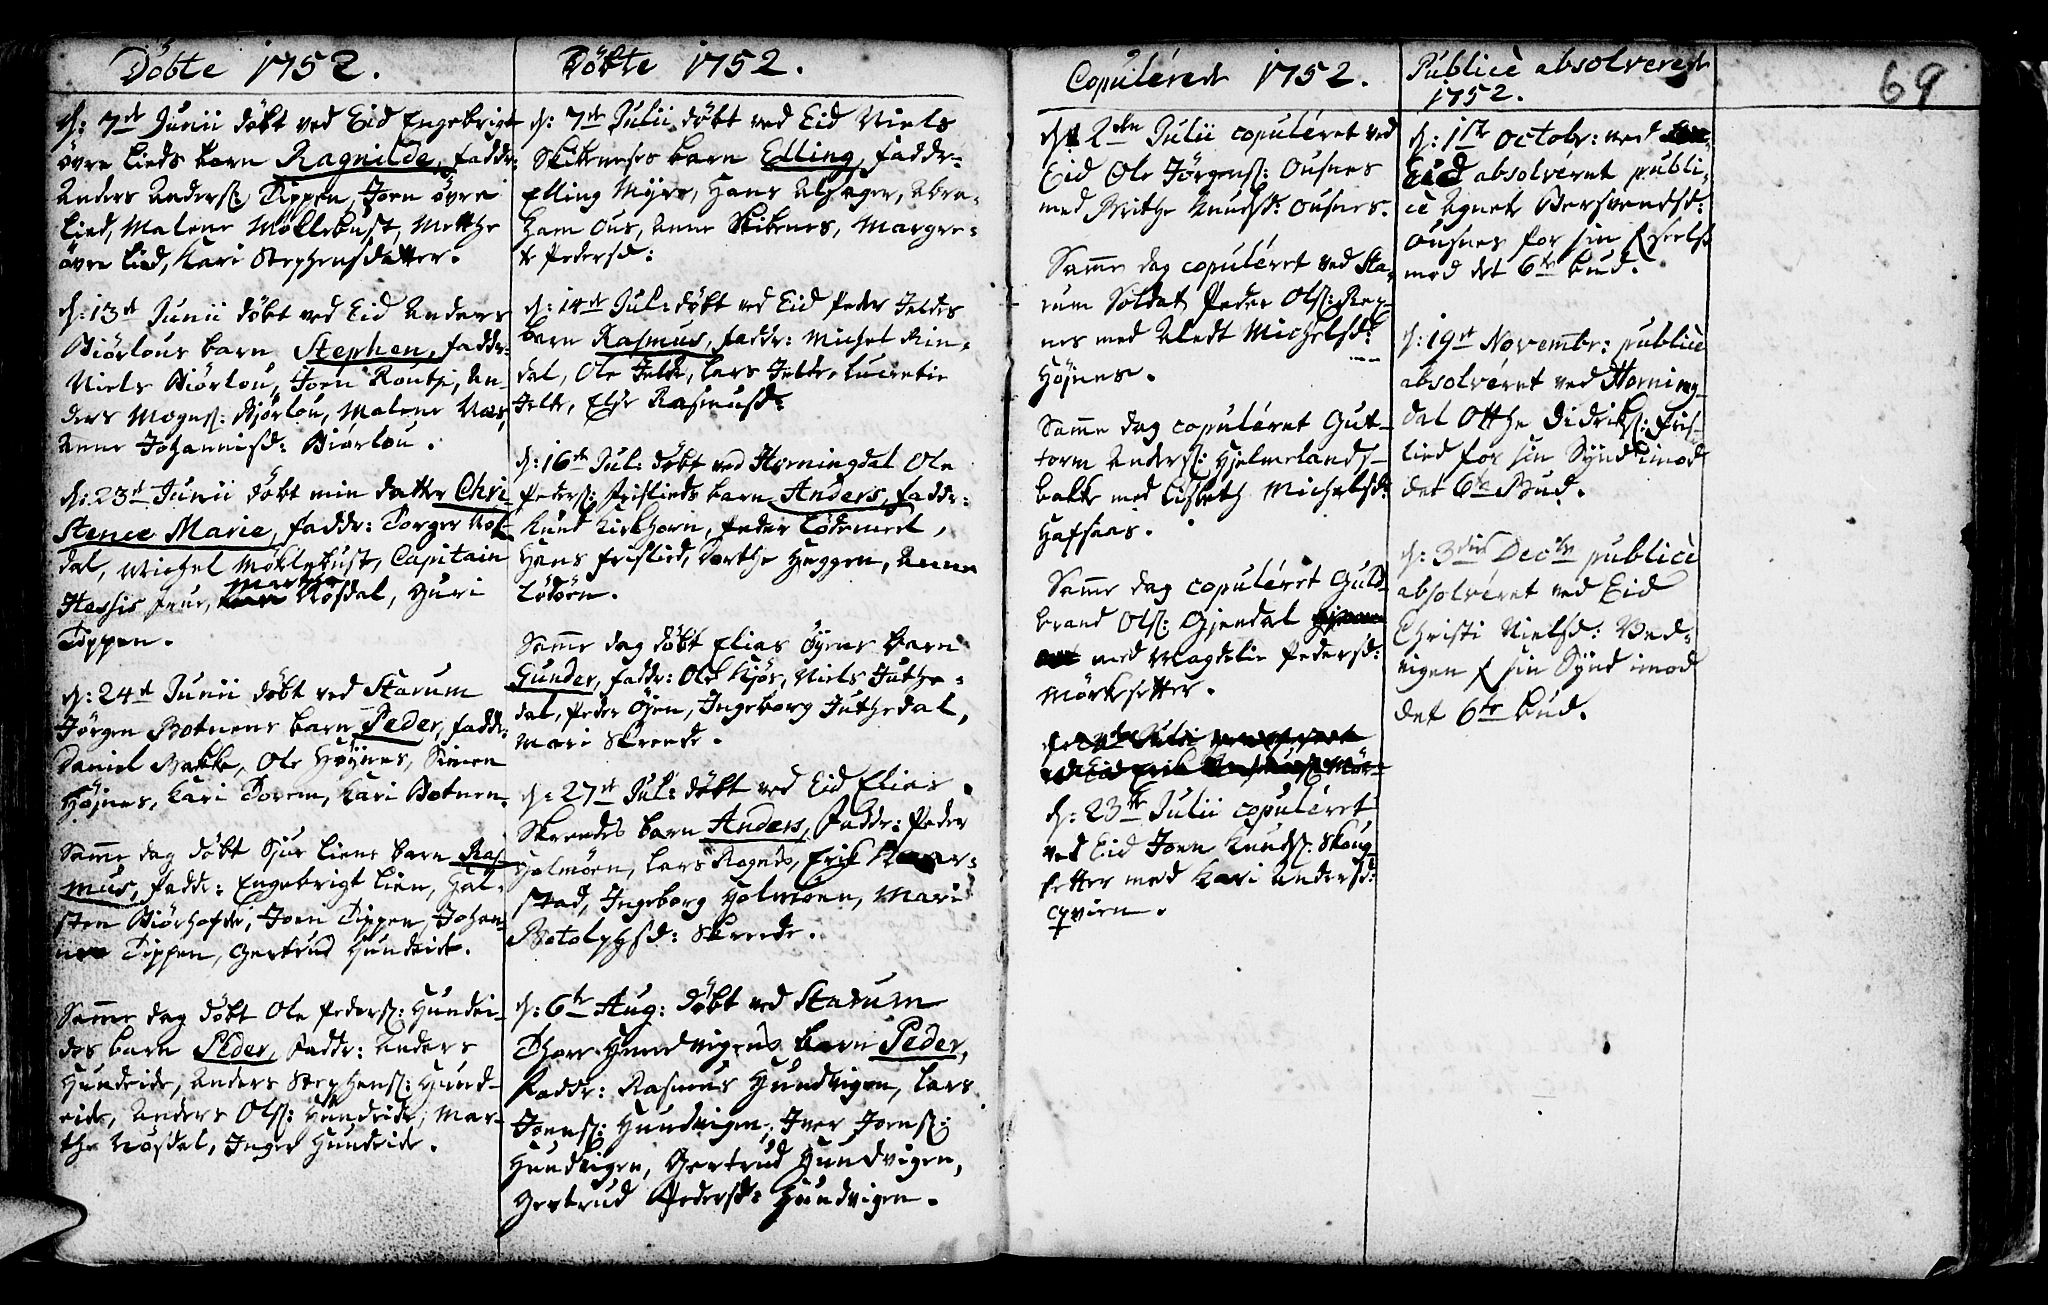 Döbte 1752.
d: 7de Junii döbt ved Eid Engebrigt
övre Lieds barn Ragnilde, faddr:
Anders Anders: Tippen, Joen övre
Lied, Malene Möllebust, Metthe
övre Lied, Kari Stephensdatter.
d: 13de Junii döbt ved Eid Anders
Biörlous barn Stephen, faddr:
Niels Biörlou, Joen Routi, An-
ders Mogns: Biörlou, Malene Naes,
Anne Johannisd: Biörlou.
d: 23de Junii döbt min datter Chri
stence Marie, faddr: Torger Nös-
dal, Michel Möklebust, Capitain
Hessis frue, Marthe Nösdal, Guri
Tippen.
d: 24de Junii döbt ved Starum
Jörgen Botnens barn Peder, fadd:
Daniel Bakke, Ole Höynes, Simen
Höjnes, Kari Torem, Kari Botnen.
Samme dag döbt Siur Liens barn Ras
mus, faddr: Engebrigt Lien, Hal-
sten Biörhofde, Joen Tippen, Johan-
nes Tippen, Gertrud Hundeide.
Samme dag döbt Ole Peders: Hundei-
des barn Peder, faddr: Anders
Hundeide, Anders Stephens: Hund-
eide, Anders Ols: Hundeide, Mar-
the Nösdal, Inger Hundeide.
Döbte 1752.
d: 7de Julii döbt ved Eid Niels
Skibenes barn Elling, faddr:
Elling Myre, Hans Alsager, Abra-
ham Ous, Anne Skibenes, Margre-
te Pedersd:
d: 14de Jul: döbt ved Eid Peder Jeldes
barn Rasmus, faddr: Michel Rin-
dal, Ole Jelde, Lars Jelde, Lucretie
Jelde, Else Rasmusd:
d: 16de Jul: döbt ved Horningdal Ole
Peders: Frislieds barn Anders, faddr:
Knud Kirkhorn, Peder Lödemeel,
Hans Frislied, Dorthe Heggen, Anne
Lödöen.
Samme dag döbt Elias Öyens barn
Gunder, faddr: Ole Kiös, Niels Juthe-
dal, Peder Öjen, Ingeborg Juthedal,
Mari Skrede.
d: 27de Jul: döbt ved Eid Elias
Skreedes barn Anders, Faddr: Peder
Holmöen, Lars Rognes, Erik Naar-
stad, Ingeborg Holmöen, Mari
Botolphsd: Skrede.
d: 6te Aug: döbt ved Starum
Thore Hundvigens barn Peder,
Faddr: Rasmus Hundvigen, Lars
Joens: Hundvigen, Iver Joens:
Hundvigen, Gertrud Hundvigen,
Gertrud Pedersd: Hundvigen.
Copulerede 1752.
d: 2den Julii copuleret ved
Eid Ole Jörgens: Ousnes
med Brithe Knudsd: Ousnes.
Samme dag copuleret ved Sta-
rum Soldat Peder Ols: Rey-
nes med Aledt Michelsd:
Höjnes.
Samme dag copuleret Gut-
torm Anders: Hjelmelands-
bakke med Lisbeth Michelsd:
Hafsaas.
Samme dag copuleret Guld-
brand Ols: Gjendal
med Magdelie Pedersd:
Mörksetter.
d: 23de Julii copuleret
ved Eid Joen Knuds: Skoug-
setter med Kari Andersd:
Qvien.
Publicè absolverede
1752.
d: 1ste Octobr: ved
Eid absolveret publi-
cè Agnete Bersvendsd:
Ousnes for sin
mod det 6te bud.
d: 19de Novembr: publicè
absolveret ved Horning-
dal Otthe Didriks: Fris-
lied for sin Synd imod
det 6te Bud.
d: 3die Decbr publicè
absolveret ved Eid
Christi Nielsd: Ved-
vigen f sin Synd imod
det 6te bud.
69